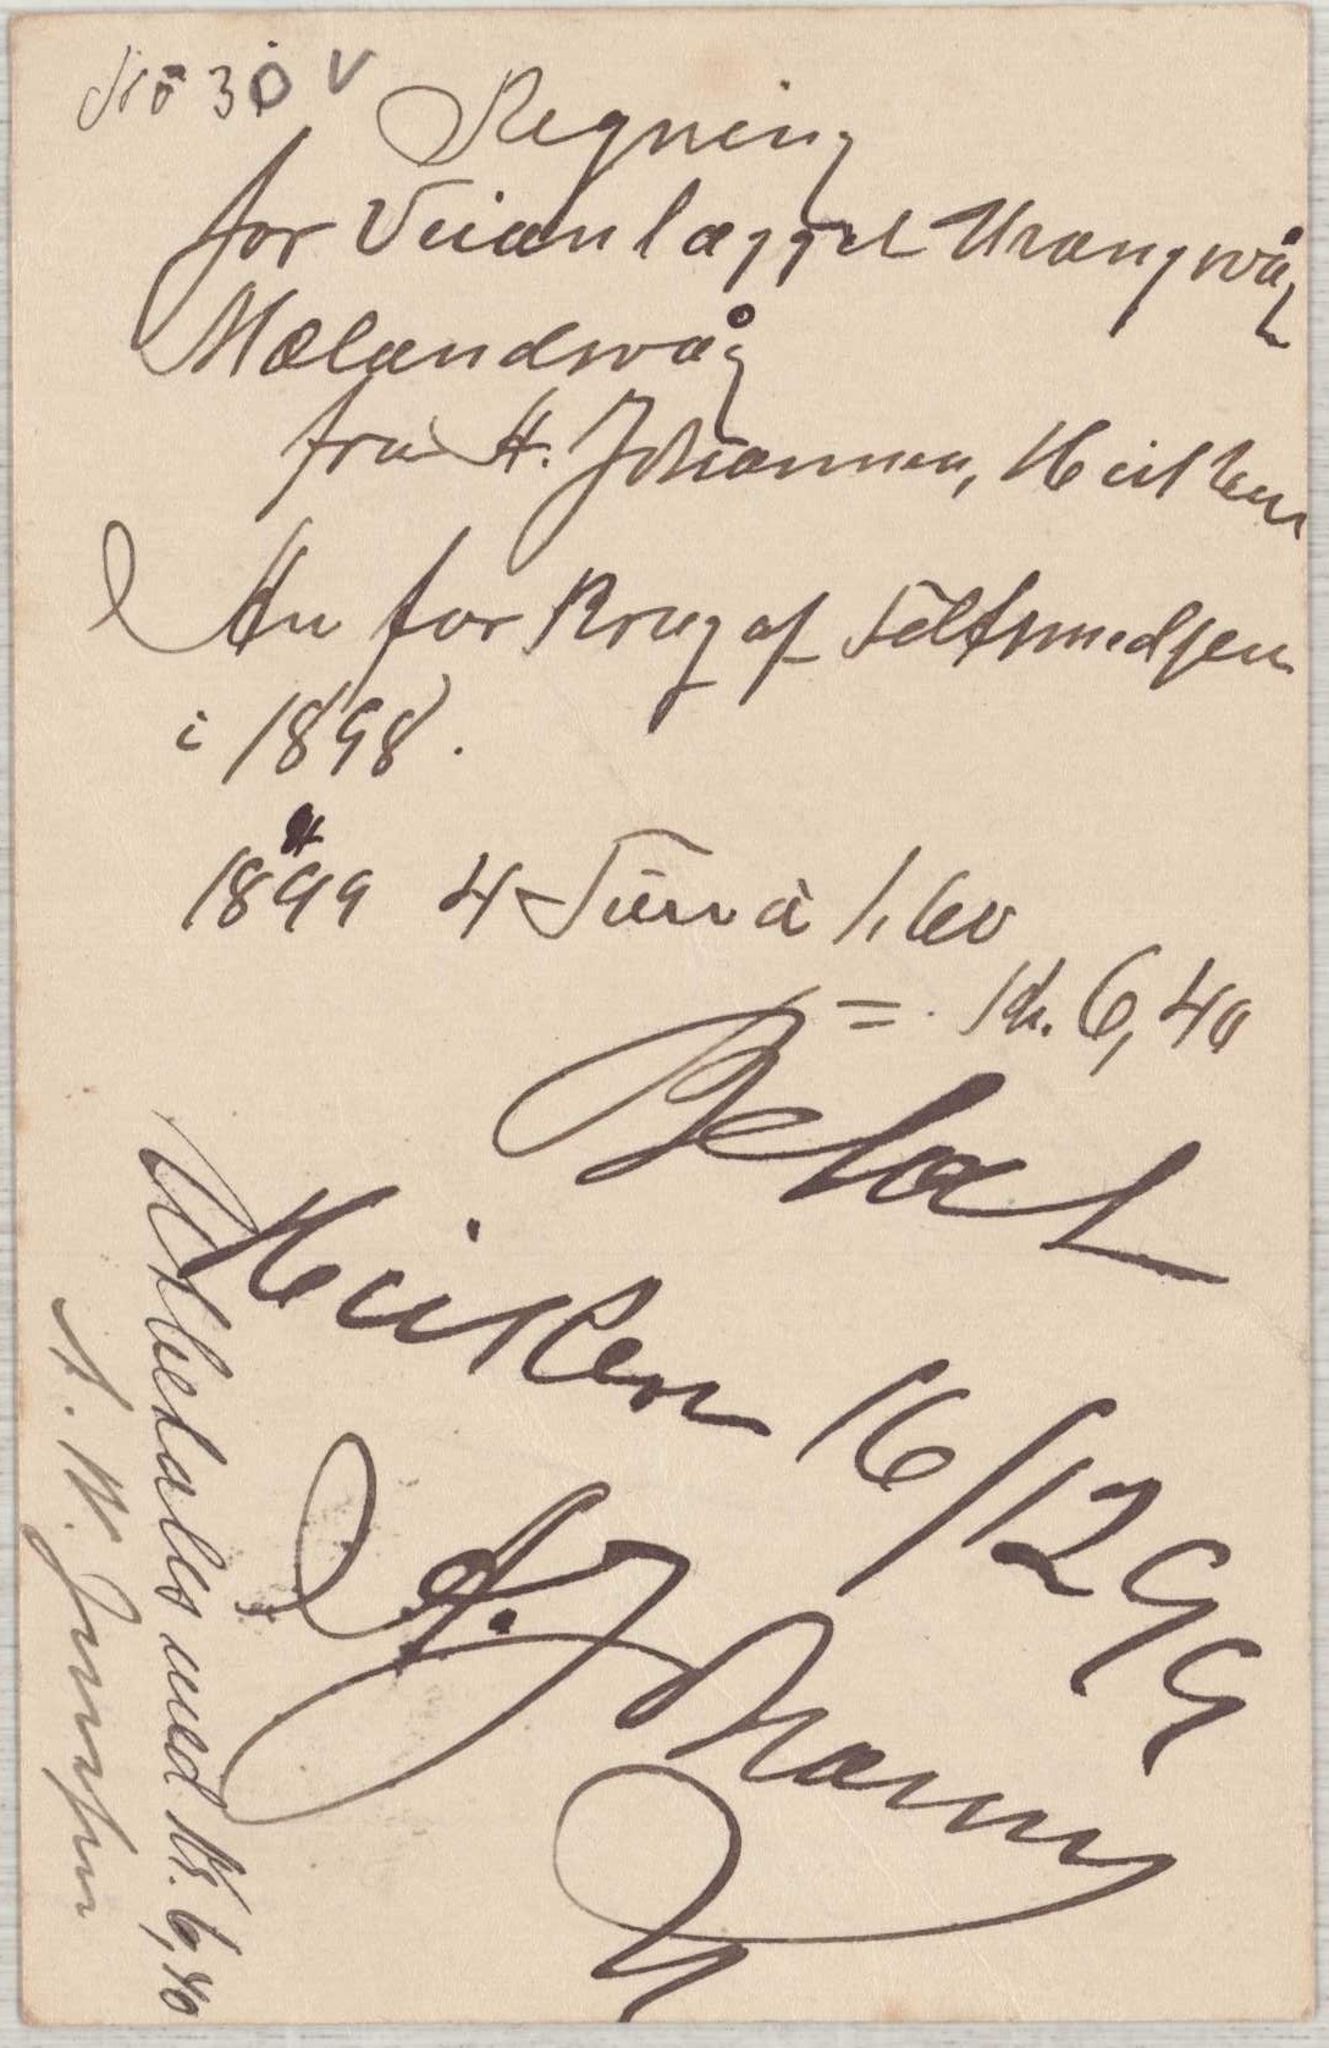 No 30 V
Regning
for Veianlægget Urangvåg
Mælandsvåg
fra H. Johannesen, Heiken
An for Brug af Feltsmedjen
i 1898.
1899 4 Turer à 1,60
= Kr. 6,40
Betalt
Heiken 16/12 99
H. Johannesen
Udbedales med Kr. 6,40